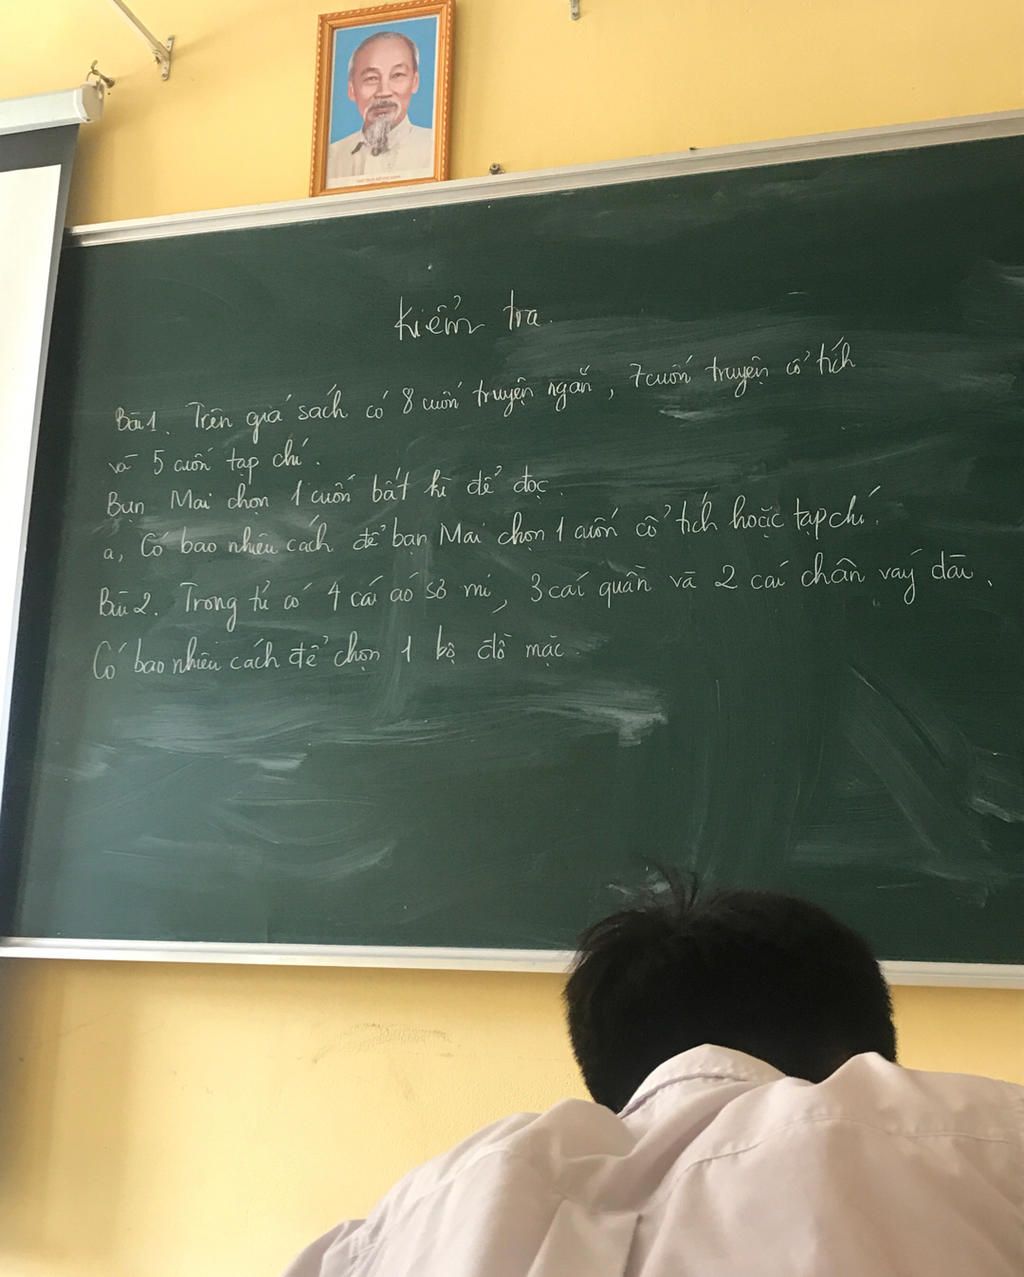 Kiểm tra.
Bài 1. Trên giá sách có 8 cuốn truyện ngắn, 7 cuốn truyện cổ tích
và 5 cuốn tạp chí.
Bạn Mai chọn 1 cuốn bất kì để đọc.
a, Có bao nhiêu cách để bạn Mai chọn 1 cuốn cổ tích hoặc tạp chí.
Bài 2. Trong tủ có 4 cái áo sơ mi, 3 cái quần và 2 cái chân váy dài.
Có bao nhiêu cách để chọn 1 bộ đồ mặc.